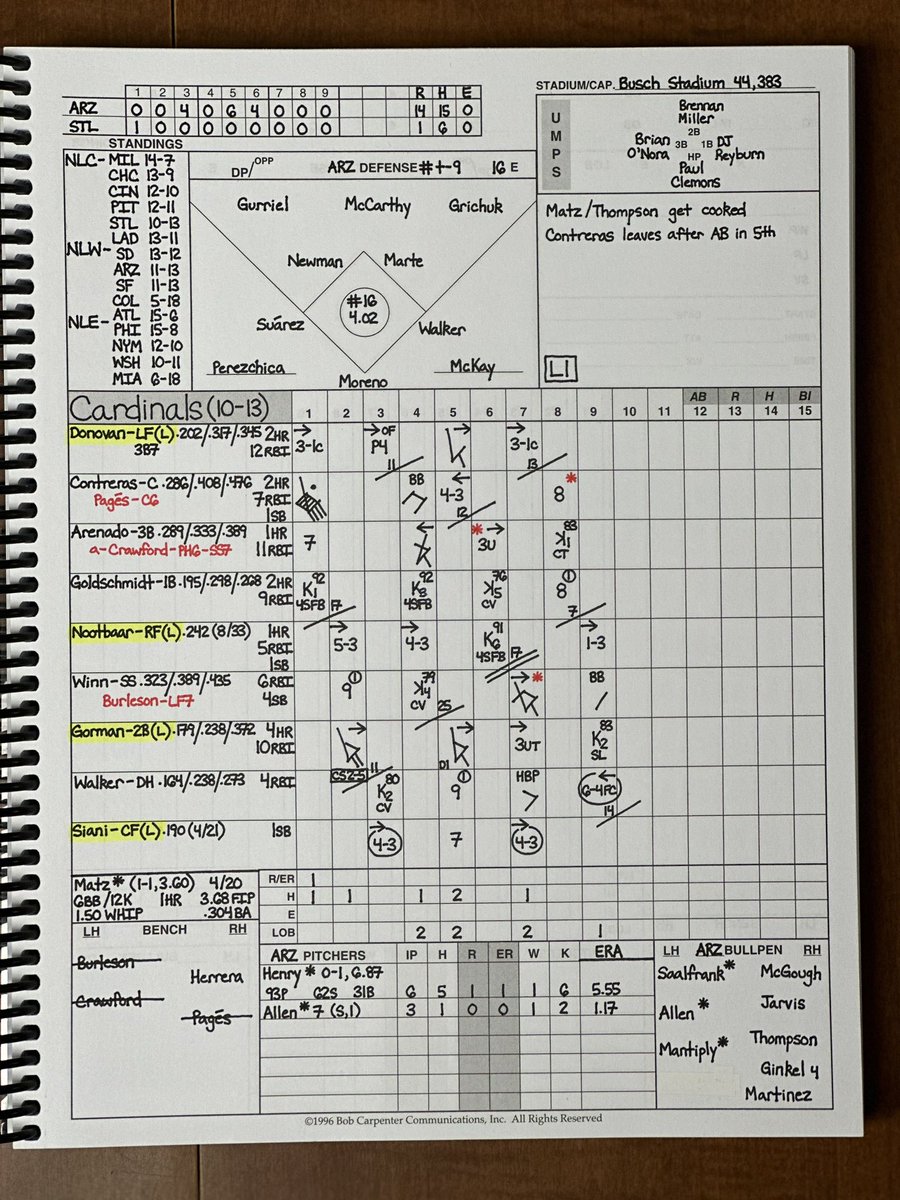 1 2 3 4 5 6 7 8 9 R H E
ARZ 0 0 4 0 6 4 0 0 0 14 15 0
STL 1 0 0 0 0 0 0 0 0 1 6 0
STADIUM/CAP. Busch Stadium 44,383
UMPS
Brennan
Miller
2B
Brian 3B 1B DJ
O'Nora HP Reyburn
Paul
Clemons
STANDINGS
NLC- MIL 14-7
CHC 13-9
CIN 12-10
PIT 12-11
STL 10-13
LAD 13-11
NLW- SD 13-12
ARZ 11-13
SF 11-13
COL 5-18
NLE- ATL 15-6
PHI 15-8
NYM 12-10
WSH 10-11
MIA 6-18
DP/OPP ARZ DEFENSE #+-9 16 E
Gurriel McCarthy Grichuk
Newman Marte
#16
4.02
Suárez Walker
Perezchica McKay
Moreno
Matz/Thompson get cooked
Contreras leaves after AB in 5th
L1
Cardinals (10-13) 1 2 3 4 5 6 7 8 9 10 11 AB 12 R 13 H 14 BI 15
Donovan-LF(L) .202/.317/.345 2HR
3B7 12RBI
3-1c OF P4 11 K 3-1c 13
Contreras-C .286/.408/.476 2HR
Pagés-C6 7RBI
1SB
BB 4-3 12 8 *
Arenado-3B .289/.333/.389 1HR
a-Crawford-PH6-SS7 11RBI
7 K * 3U 83 K1 CT
Goldschmidt-1B .195/.298/.268 2HR
9RBI
92 K1 4SFB 17 92 K3 4SFB 76 K5 CV 8 1 7
Nootbaar-RF(L) .242 (8/33) 1HR
5RBI
1SB
5-3 4-3 91 K6 4SFB 17 1-3
Winn-SS .323/.389/.435 6RBI
Burleson-LF7 4SB
9 1 79 K4 CV 25 * BB
Gorman-2B(L) .179/.238/.372 4HR
10RBI
CS2-5 11 D1 3UT 83 K2 SL
Walker-DH .164/.238/.273 4RBI
80 K2 CV 9 1 HBP 6-4FC 14
Siani-CF(L) .190 (4/21) 1SB
4-3 7 4-3
Matz* (1-1, 3.60) 4/20
6BB/12K 1HR 3.68FIP
1.50 WHIP .304BA
R/ER 1
H 1 1 1 2 1
E
LOB 2 2 2 1
LH BENCH RH
Burleson
Herrera
Crawford
Pagés
ARZ PITCHERS IP H R ER W K ERA
Henry* 0-1, 6.87
93P 62S 31B 6 5 1 1 1 6 5.55
Allen* 7 (S,1) 3 1 0 0 1 2 1.17
LH ARZ BULLPEN RH
Saalfrank* McGough
Allen* Jarvis
Mantiply* Thompson
Ginkel 4
Martinez
©1996 Bob Carpenter Communications, Inc. All Rights Reserved